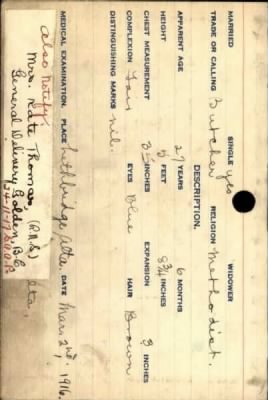 MARRIED SINGLE yes WIDOWER
TRADE OR CALLING Butcher RELIGION Methodist.
DESCRIPTION.
APPARENT AGE 27 YEARS 6 MONTHS
HEIGHT 5 FEET 8 3/4 INCHES
CHEST MEASUREMENT 35 INCHES EXPANSION 3 INCHES
COMPLEXION Fair EYES Blue HAIR Brown
DISTINGUISHING MARKS nil.
MEDICAL EXAMINATION. PLACE Lethbridge Alta DATE Mar. 2nd, 1916.
also notify:
Mrs. Kate Thomas
General Delivery Golden B.C.
lta,